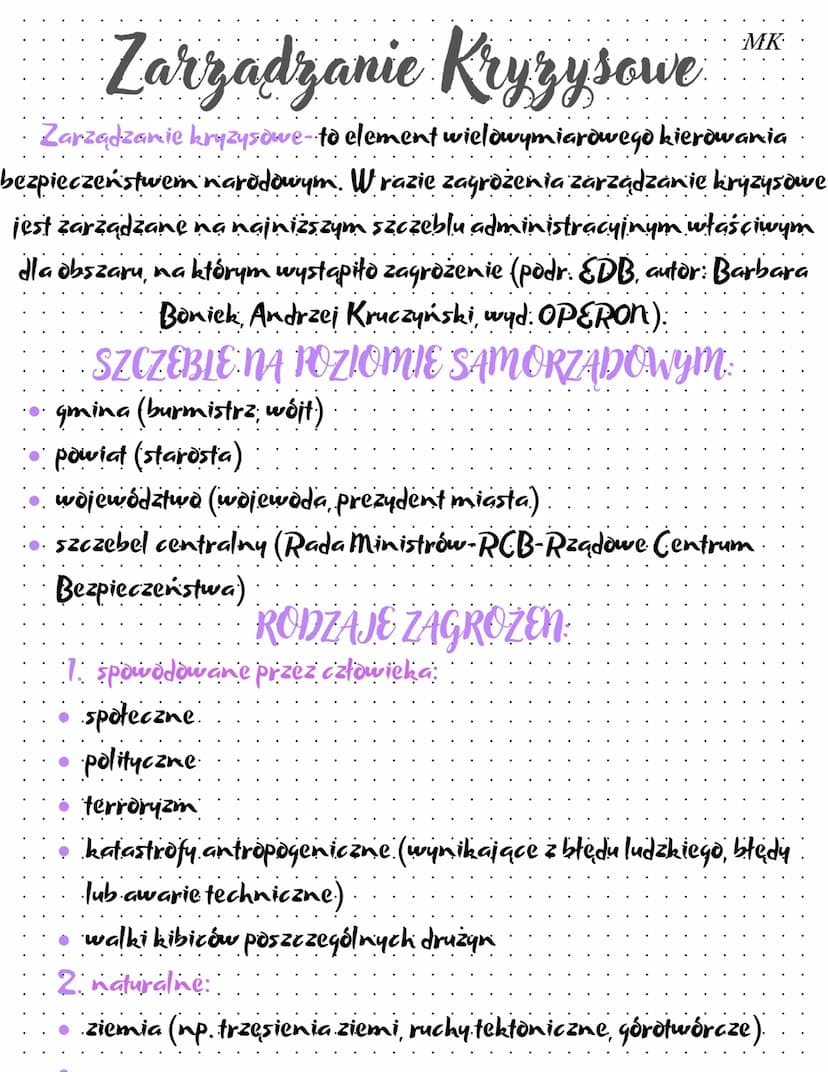 MK
Zarządzanie Kryzysowe
Zarządzanie kryzysowe- to element wielowymiarowego kierowania
bezpieczeństwem narodowym. W razie zagrożenia zarządzanie kryzysowe
jest zarządzane na najniższym szczeblu administracyjnym właściwym
dla obszaru, na którym wystąpiło zagrożenie (podr. EDB, autor: Barbara
Boniek, Andrzej Kruczyński, wyd. OPERON).
SZCZEBLE NA POZIOMIE SAMORZĄDOWYM:
• gmina (burmistrz, wójt)
• powiat (starosta)
• województwo (wojewoda, prezydent miasta)
• szczebel centralny (Rada Ministrów-RCB-Rządowe Centrum
Bezpieczeństwa)
RODZAJE ZAGROŻEŃ:
1. spowodowane przez człowieka:
• społeczne
• polityczne
• terroryzm
• katastrofy antropogeniczne (wynikające z błędu ludzkiego, błędy
lub awarie techniczne)
• walki kibiców poszczególnych drużyn
2. naturalne:
• ziemia (np. trzęsienia ziemi, ruchy tektoniczne, górotwórcze)